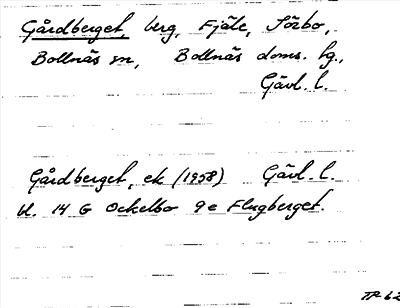 Gårdberget, berg, Fjäle, Sörbo,
Bollnäs sn, Bollnäs doms. hg.,
Gävl. l.
Gårdberget, ek (1958) Gävl. l.
bl. 14 G Ockelbo 9e Flugberget.
TP 62